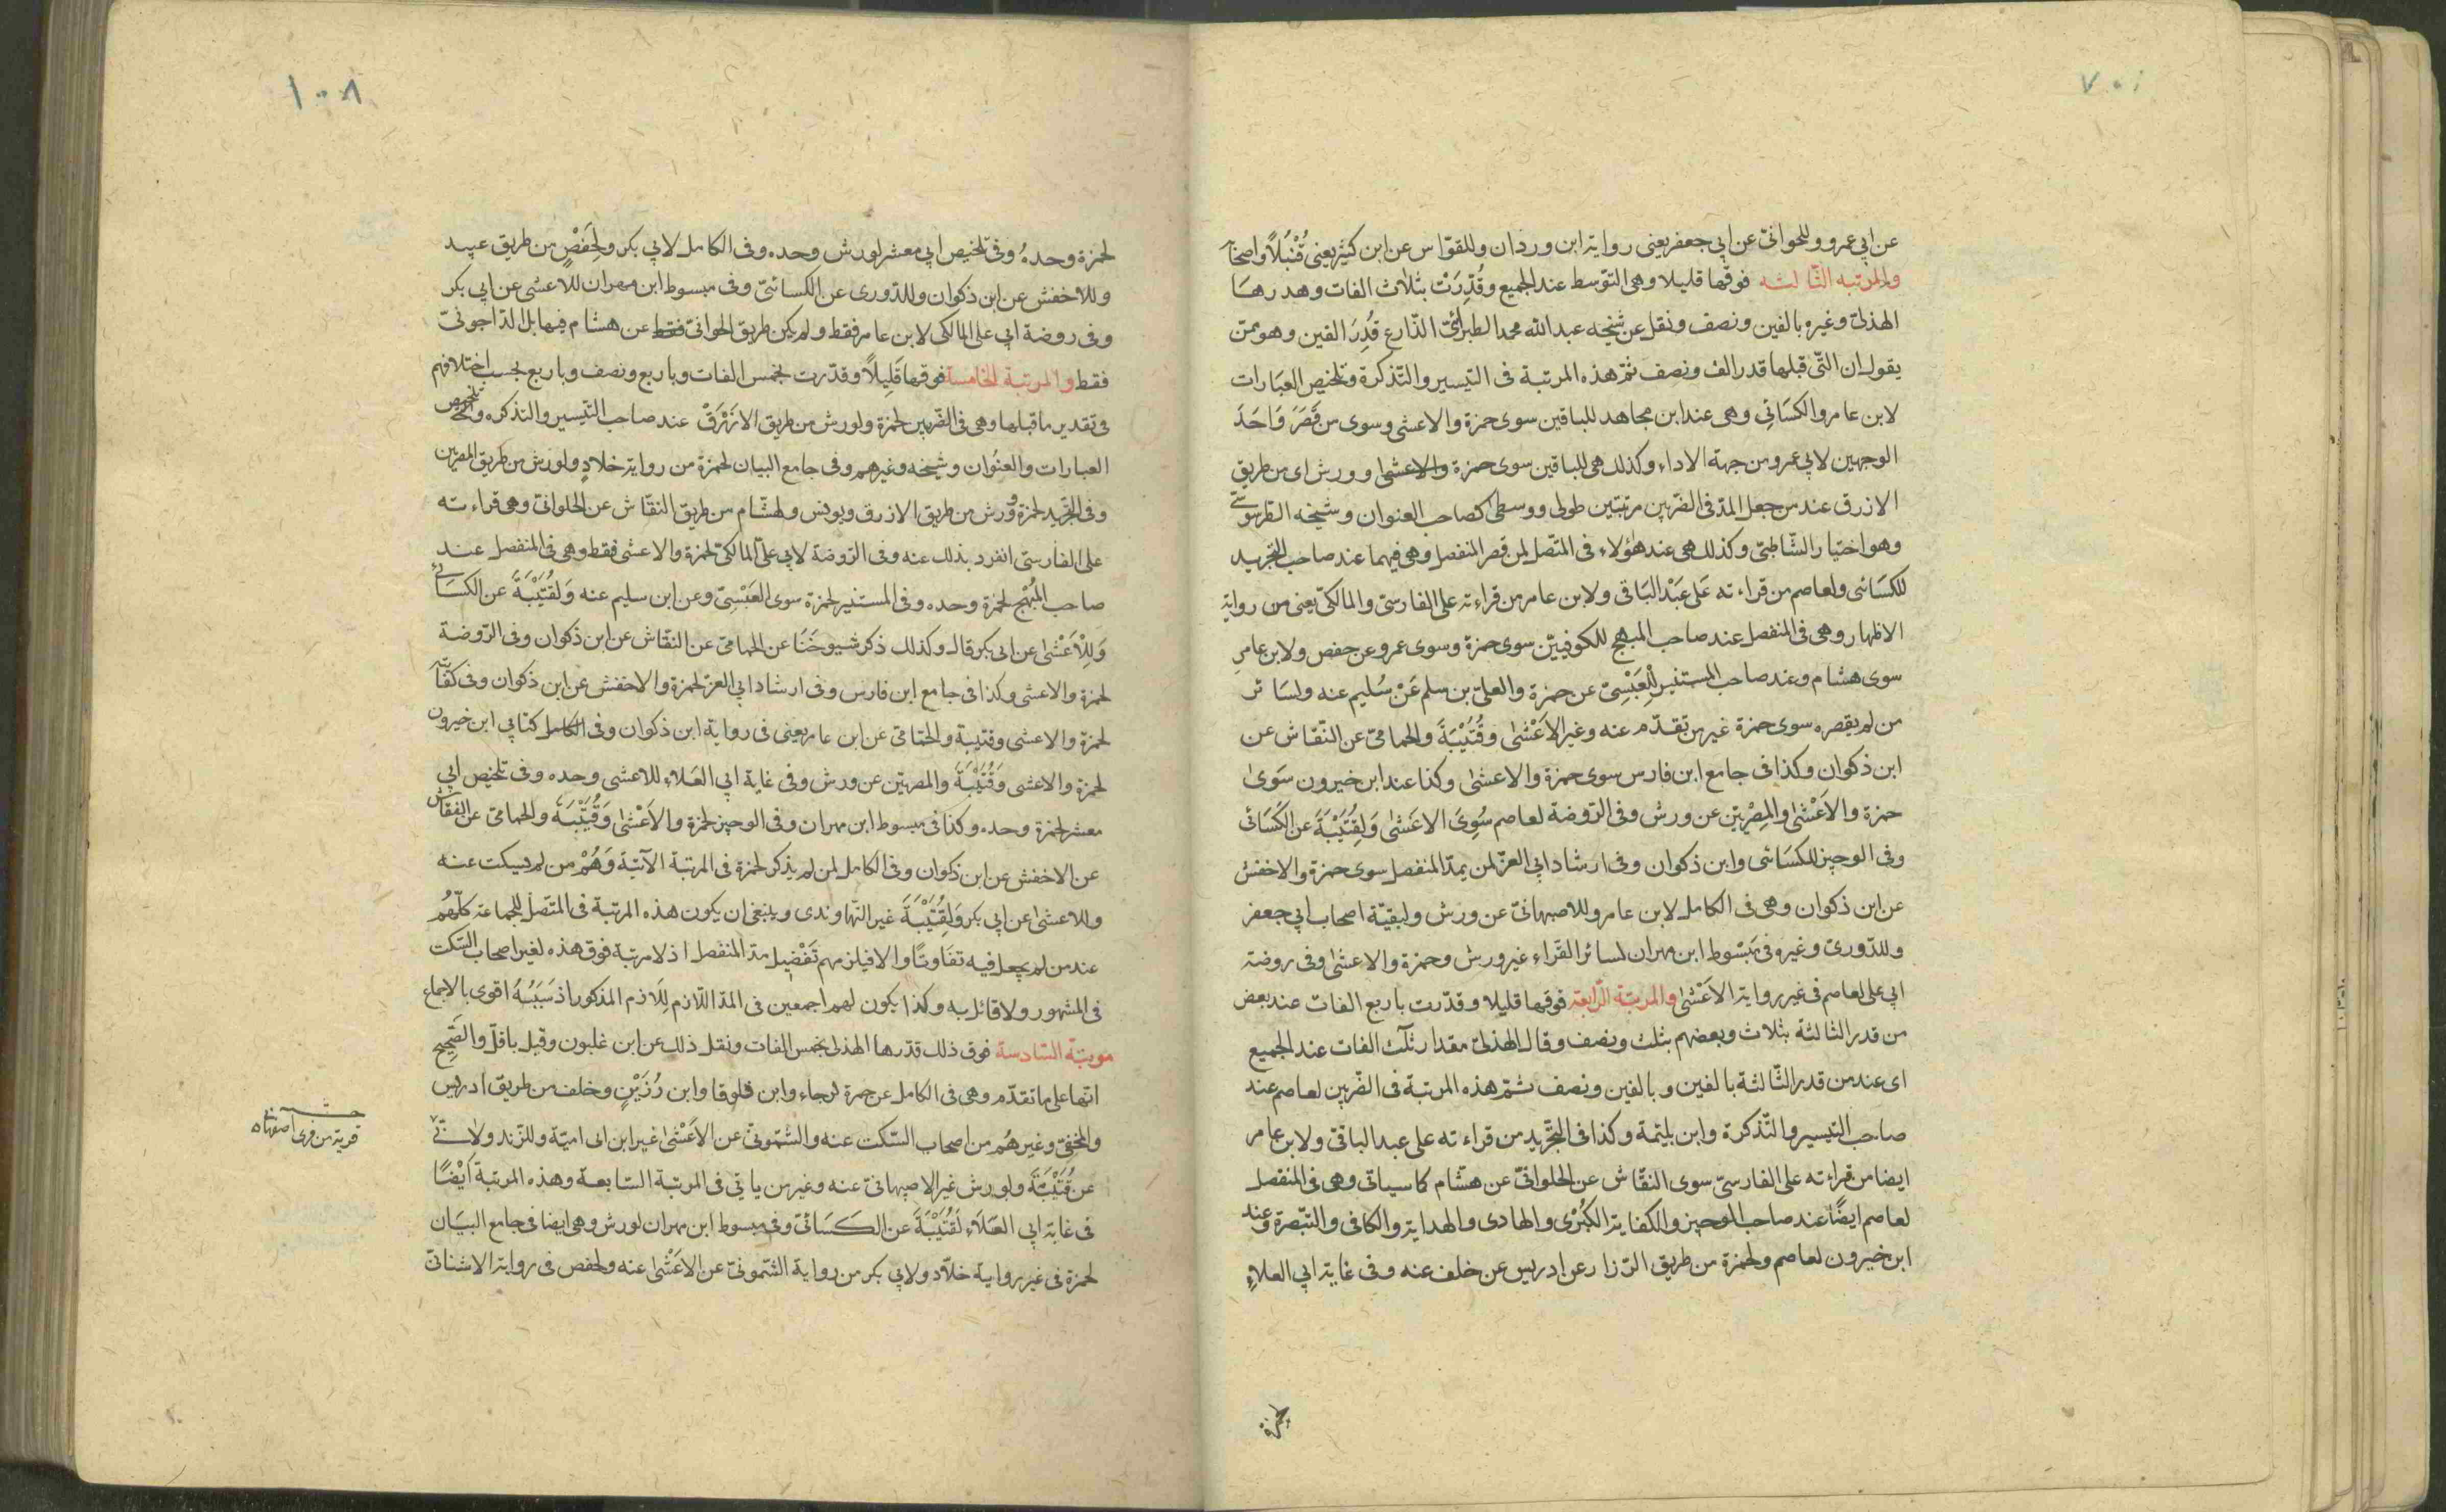 ١٠٧
عن ابي عمرو وللحلوانىّ عن ابي جعفر يعنى رواية ابن وردان وللقوّاس عن ابن كثير يعنى قُنْبُلاً واصحابه
والمرتبه الثّالثه فوقها قليلا وهى التوّسط عند الجميع وقُدِّرَتْ بثلاث الفات وهدرها
الهذلىّ وغيره بالفين ونصف ونقل عن شيخه عبد الله محمد الطبرائىّ الذّارع قُدِرَ الفين وهو ممّن
يقول ان التّى قبلها قدر الف ونصف ثمّ هذه المرتبة فى التيسير والتّذكرة وتلخيص العبَارات
لابن عامر والكسَائىِ وهى عند ابن مجاهد للباقين سوى حمزة والاعشى وسوى من قَصَرَ وَاَحَدَ
الوجهين لابي عمرو من جهة الاداء وكذلك هى للباقين سوى حمزة والاعشى وورش اى من طريق
الازرق عند من جعل المدّ فى الضّربين مرتبتين طولى ووسطى كصاحب العنوان وشيخه الطّرسُوسىّ
وهو اختيار الشّاطبىّ وكذلك هى عند هؤلاء فى المتّصل لمن قصر المنفصل وهى فيهما عند صاحب التجريد
للكسَائى ولعاصم من قراءته عَلى عَبْد البَاقى ولابن عامر من قراءته على الفارسىّ والمالكىّ يعنى من رواية
الاظهار وهى فى المنفصل عند صاحب المبهج للكوفييّن سوى حمزة وسوى عمرو عن حفص ولابن عامرِ
سوى هشام وعند صاحب المستنير لِلْعَبَسِىّ عن حمزة والعلىّ بن سلم عَنْ سُليم عنه ولسَائر
من لم يقصره سوى حمزة غير من تقدّم عنه وغير الاَعْشٰى وقُتَيْبَةَ والحمامىّ عن النّقاش عن
ابن ذكوان وكذا فى جامع ابن فارس سوى حمزة والاعشىٰ وكذا عند ابن خيرون سَوىٰ
حمزة والاَعْشٰى والمِصْريّين عن ورش وفى الرّوضة لعاصم سُوِىَ الاعَشٰى وَلِقُتَيْبَةَ عن الكَسَائى
وفى الوجيز للكسَائى وابن ذكوان وفى ارشاد ابي العزّ لمن يمدّ المنفصل سوى حمزة والاخفش
عن ابن ذكوان وهى فى الكامل لابن عامر وللاصبهانىّ عن ورش ولبقيّة اصحاب ابي جعفر
وللدّورىّ وغيره فى مَبْسُوط ابن مهران لسائر القرّاء غير ورش وحمزة والاعشٰى وفى روضة
ابي على لعاصم فى غير رواية الاَعْشٰى والمرتبَة الرّابعَة فوقها قليلا وقدّرت باربع الفات عند بعض
من قدر الثالثة بثلاث وبعضهم بثلث ونصف وقال الهذلىّ مقدار ثلٰث الفات عند الجميع
اى عند من قدر الثّالثة بالفين وبالفين ونصف ثمّ هذه المرتبة فى الضّربين لعاصم عند
صاحب التيسير والتّذكرة وابن بليّمة وكذا فى التّجريد من قراءته على عبد الباقىّ ولابن عامر
ايضا من قراءته على الفارسىّ سوى النقّاش عن الحلوانىّ عن هشّام كما سياتى وهى فى المنفصل
لعاصم ايضًا عند صاحب الوجيز والكفاية الكبُرٰى والهادى والهداية والكافى والتّبصرة وعند
ابن خيرون لعاصم ولحمزة من طريق الرّزاز عن ادريس عن خلف عنه وفى غاية ابي العلاءِ
لحمزة
١٠٨
لحمزة وحدهُ وفى تلخيص ابي معشر لورش وحده وفى الكامل لابي بكر ولِحَفْصٍ من طريق عبيد
وللاخفش عن ابن ذكوان وللدّورى عن الكسائىّ وفى مبسوط ابن مهران للاعشى عن ابي بكر
وفى روضة ابي على المالكى لابن عامر فقط ولم يكن طريق الحلوانىّ فقط عن هشام فيها بل الدّاجونىّ
فقط والمرتبة الخامسة فوقها قَلِيلاً وقدّرت بخمس الفات وباربع ونصف وباربع بحسب اختلافهم
فى تقدير ما قبلها وهى فى الضّربين لحمزة ولورش من طريق الازَرَق عند صاحب التّيسير والتذكره وتلخيص
العبارات والعنُوان وشيخه وغيرهم وفى جامع البيان لحمزة من رواية خلادٍ ولورش من طريق المصريّين
وفى التجّريد لحمزة وورش من طريق الازرق ويونس ولهشّام من طريق النقّاش عن الحلوانىّ وهى قراءته
على الفارسىّ انفرد بذلك عنه وفى الرّوضة لابي علىّ المالكىّ لحمزة والاعشى فقط وهى فى المنفصل عند
صاحب المُبْهج لحمزة وحده وفى المستنير لحمزة سوى العَبْسِىّ وعن ابن سليم عنه وَلقُتَيْبَةَ عن الكسَائىِ
وَلِلْاَعْشٰى عن ابى بكر قال وكذلك ذكر شيوخَنَا عن الحمامىّ عن النقّاش عن ابن ذكوان وفى الرّوضة
لحمزة والاعشى وكذا فى جامع ابن فارس وفى ارشاد ابي العزّ لحمزة والاخفش عن ابن ذكوان وفى كفَّايته
لحمزة والاعشى وقتيبة والحمّامىّ عن ابن عامر يعنى فى رواية ابن ذكوان وفى الكامل كتابي ابن خيرون
لحمزة والاعشى وَقُتَيْبَةَ والمصريّين عن ورش وفى غاية ابي العَلاء للاعشى وحده وفى تلخيص ابي
معشر لحمزة وحده وكذا فى مبسوط ابن مهران وفى الوجيز لحمزة والاَعْشٰى وَقُتَيْبَةَ والحمامىّ عن النقاش
عن الاخفش عن ابن ذكوان وفى الكامل لمن لم يذكر لحمزة فى المرتبة الآتيَة وَهُمْ من لم يسكت عنه
وللاعشٰى عن ابي بكر وَلِقُتَيْبَةَ غير النّهاوندى وينبغى ان يكون هذه المرتبة فى المتّصل للجماعة كلّهُم
عند من لم يجعل فيه تفَاوتًا والا فيلزمهم تَفْضِيل مدّ المنفصل اذ لا مرتبة فوق هذه لغير اصحاب السّكت
فى المشهور ولا قائل به وكذا يكون لهم اجمعين فى المدّ اللّازم لِلَازم المذكور اذ سَبَبُهُ اقوى بالاجماع
مرتبَة السّادسة فوق ذلك قدّرها الهذلى بخمس الفات ونقل ذلك عن ابن غلبون وقيل باقلّ والصَّحِيح
انّها على ما تقدّم وهى فى الكامل عن حمزة لرجاء وابن قلوقا وابن رُزَيْنٍ وخلف من طريق ادريس
والمخفىّ وغيرهُم من اصحاب السّكت عنه والشّمونىّ عن الاَعْشٰى غير ابن ابى اميّة وللزّند ولانىّ
عن قُتَيْبَةَ ولورش غير الاصبهانىّ عنه وغير من ياتى فى المرتبة السّابعة وهذه المرتبة اَيْضًا
فى غاية ابي العَلَاء لَقُتَيْبَةَ عن الكَسَائىّ وفى مبسوط ابن مهران لورش وهى ايضا فى جامع البيَان
لحمزة فى غير رواية خلّاد ولابي بكر من رواية الشّمونىّ عن الاَعْشٰى عنه ولحفص فى رواية الاشنانىّ
قرية من قرى اصفهان